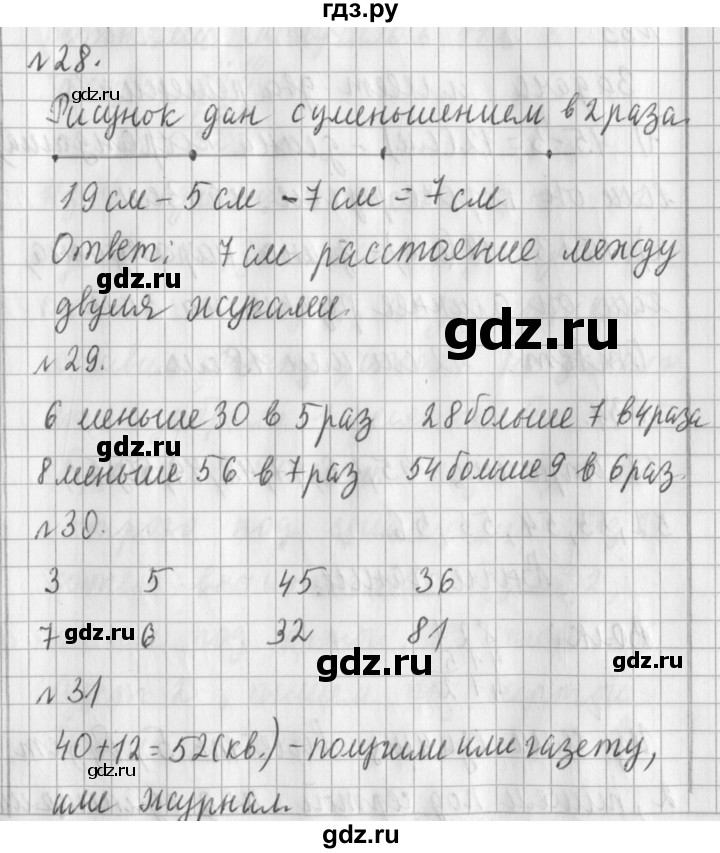 гдз.ру
№28.
gdz.ru
Рисунок дан с уменьшением в 2 раза.
19 см - 5 см - 7 см = 7 см
Ответ: 7 см расстояние между
gdz.ru
двумя жуками.
gdz.ru
№29.
6 меньше 30 в 5 раз 28 больше 7 в 4 раза
gdz.ru
8 меньше 56 в 7 раз 54 больше 9 в 6 раз.
№30.
3 5 45 36
7 gdz.ru 6 32 81
gdz.ru gdz.ru
№31
40+12=52(кв.) - получили или газету,
gdz.ru
или журнал.
gdz.ru